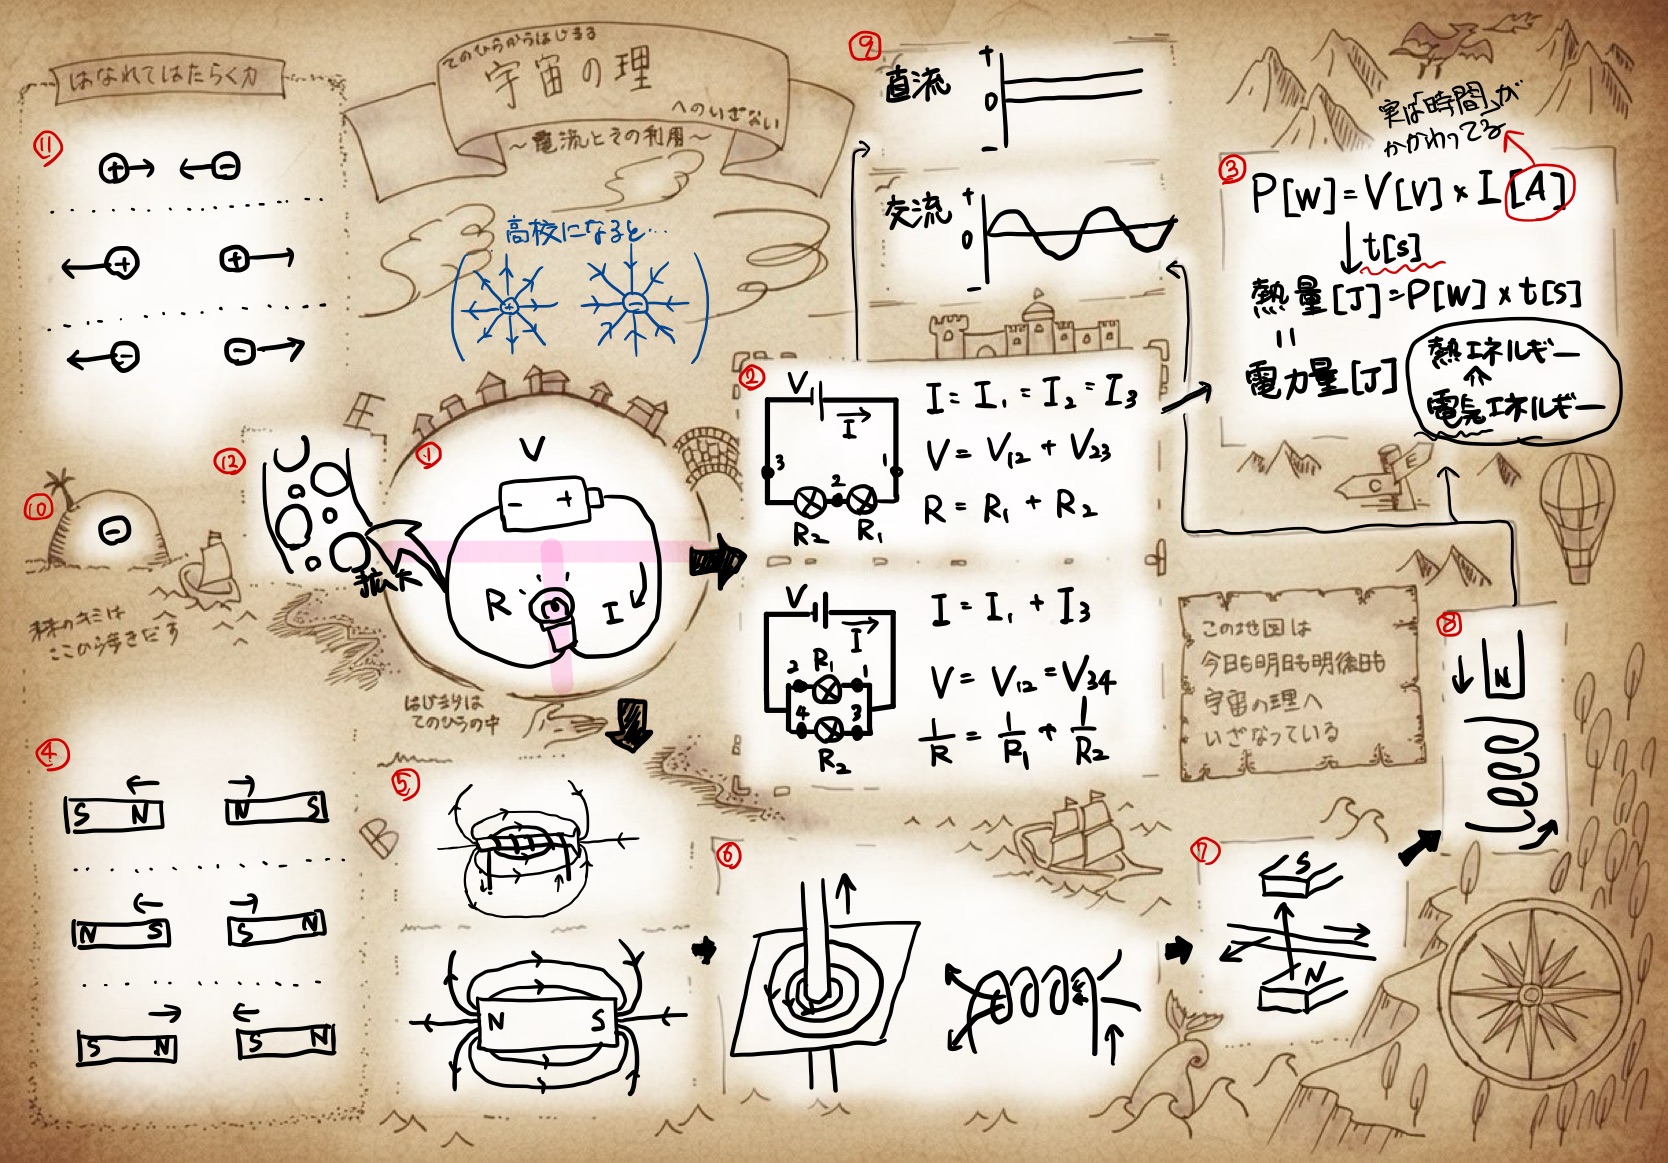 はなれてはたらく力
てのひらからはじまる
宇宙の理
へのいざない
～電流とその利用～
⑪
+ -
+ +
- -
高校になると…
+ -
⑨
直流
+
0
-
交流
+
0
-
実は「時間」が
かかわってる
③
P[W]=V[V]×I[A]
↓t[s]
熱量[J]=P[W]×t[s]
=
電力量[J]
熱エネルギー
⇑
電気エネルギー
②
V
I
3 2 1
R2 R1
I=I1=I2=I3
V=V12+V23
R=R1+R2
V
I
2 R1 1
4 3
R2
I=I1+I3
V=V12=V34
1/R=1/R1+1/R2
①
V
- +
R
I
⑫
拡大
⑩
-
未来のキミは
ここから歩きだす
はじまりは
てのひらの中
E
C
この地図は
今日も明日も明後日も
宇宙の理へ
いざなっている
⑧
N
④
S N N S
N S S N
S N S N
B
⑤
N S
⑥
⑦
S
N